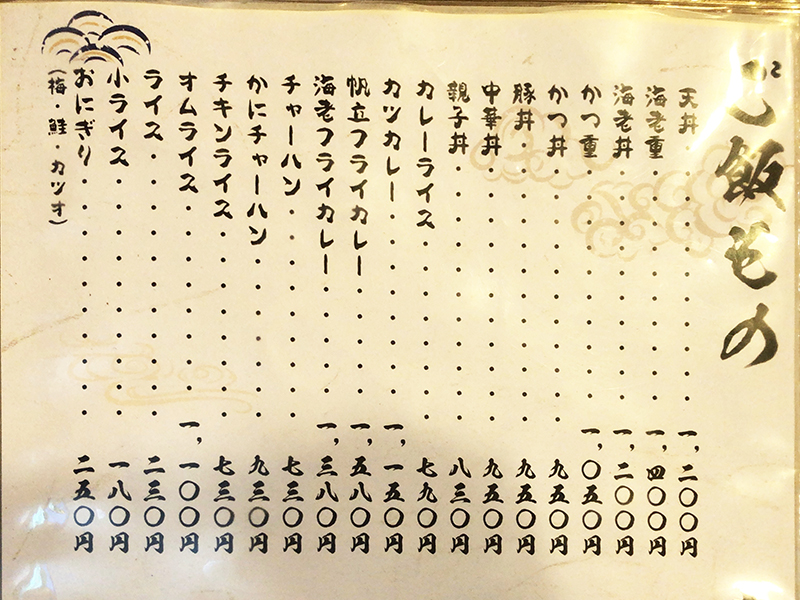 ご飯もの
天丼・・・・・・・・・・一、二〇〇円
海老重・・・・・・・・・一、四〇〇円
海老丼・・・・・・・・・一、二〇〇円
かつ重・・・・・・・・・一、〇五〇円
かつ丼・・・・・・・・・・九五〇円
豚丼・・・・・・・・・・・九五〇円
中華丼・・・・・・・・・・九五〇円
親子丼・・・・・・・・・・八三〇円
カレーライス・・・・・・・七九〇円
カツカレー・・・・・・・・一、一五〇円
帆立フライカレー・・・・・一、五八〇円
海老フライカレー・・・・・一、三八〇円
チャーハン・・・・・・・・七三〇円
かにチャーハン・・・・・・九三〇円
チキンライス・・・・・・・七三〇円
オムライス・・・・・・・・一、一〇〇円
ライス・・・・・・・・・・二三〇円
小ライス・・・・・・・・・一八〇円
おにぎり・・・・・・・・・二五〇円
（梅・鮭・カツオ）